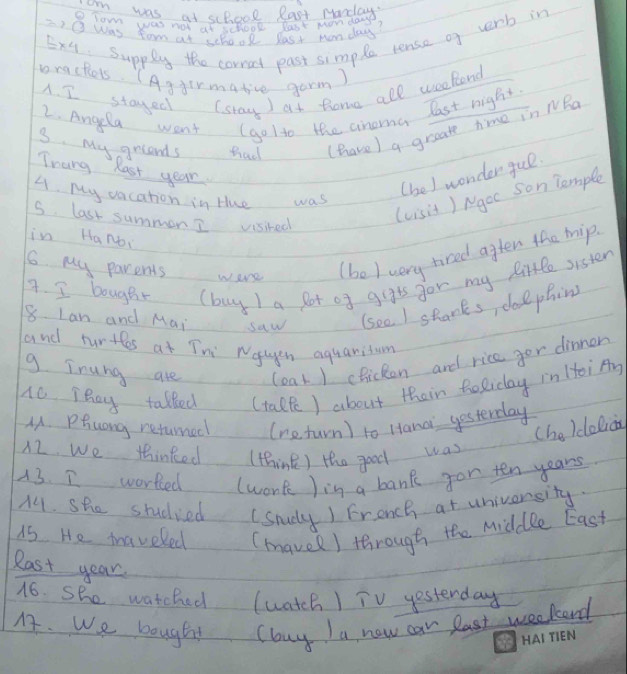 Tom was at school last Monday.
Tom was not at school last Monday
=> Was Tom at school last Monday?
Ex4. Supply the correct past simple tense of verb in
brackets. (Affirmative form)
1. I stayed (stay) at home all weekend
2. Angela went (go) to the cinema last night.
3. My friends had (have) a great time in Nha
Trang last year.
4. My vacation in Hue was (be) wonderful.
5. last summer I visited (visit) Ngoc Son Temple
in Ha Noi
6. My parents were (be) very tired after the trip.
7. I bought (buy) a lot of gifts for my little sister
8. Lan and Mai saw (see) sharks, dolphins
and turtles at Tri Nguyen aquarium
9. Trung ate (eat) chicken and rice for dinner
10. They talked (talk) about their holiday in Hoi An
11. Phuong returned (return) to Hanoi yesterday
12. We thinked (think) the food was (be) delicio
13. I worked (work) in a bank for ten years
14. She studied (study) French at university.
15 He traveled (travel) through the Middle East
last year.
16. She watched (watch) TV yesterday
17. We bought (buy) a new car last weekend
HAI TIEN